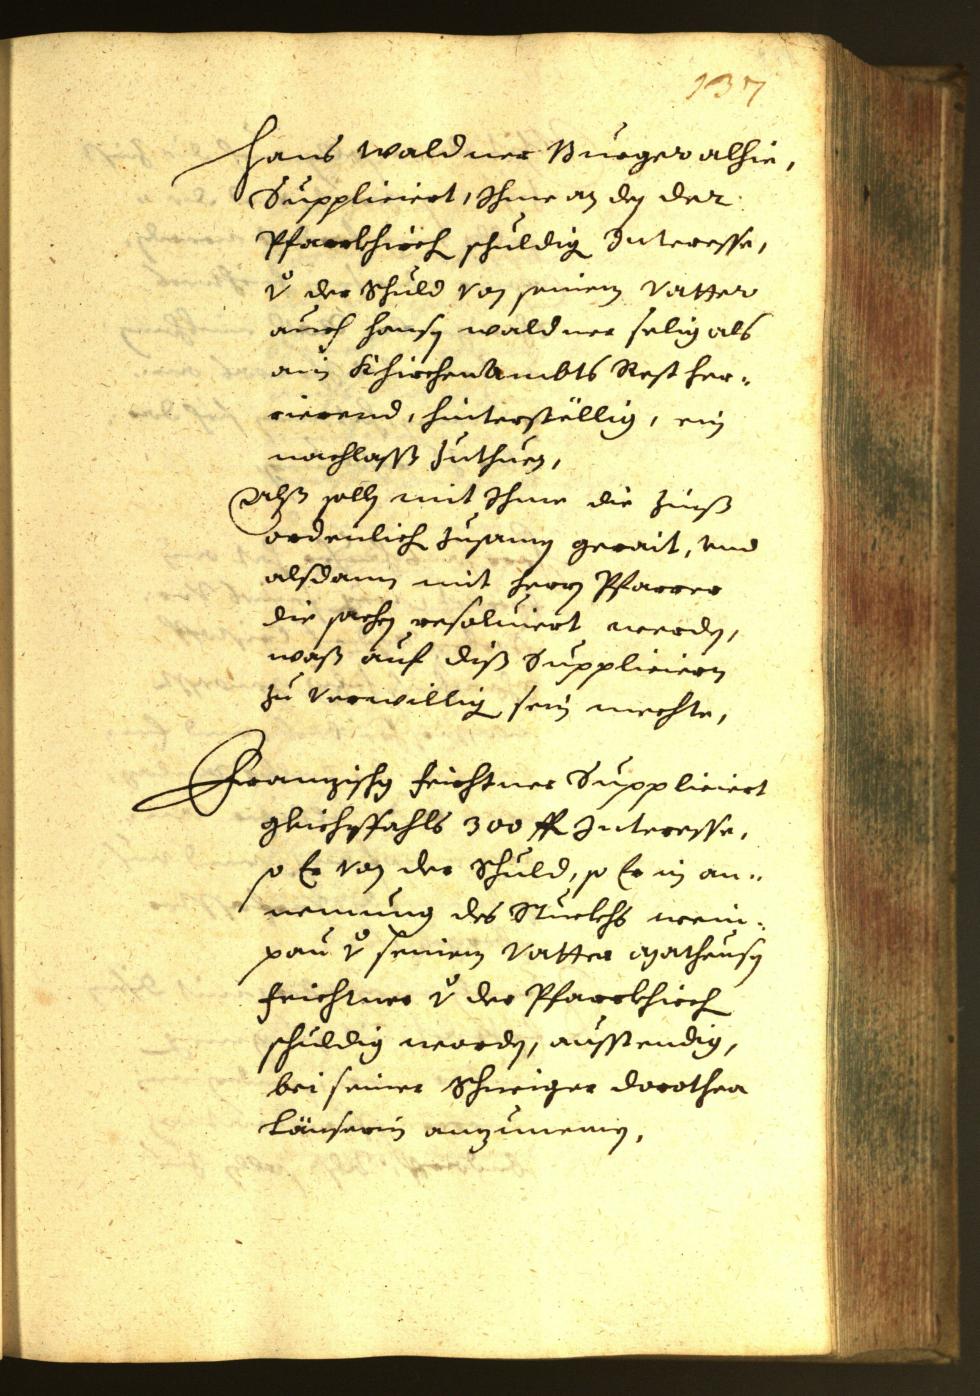 137
Hans Waldner Burger alhie,
Suppliciert, Ihme an den der
Pfarrkhirch schuldig Interesse,
vo der Schuld von seinem Vatter
auch Hansn Waldner selig als
ain Khirchen Ambts Rest her-
rierend, hinterstöllig, ein
nachlasß zuthuen,
Alß solle mit Ihme die Zinß
ordenlich zusamen gerait, und
alsdann mit Herrn Pfarrer
die sachen resolviert werden,
waß auf diß Supplicieren
zu verwilligen sein mechte,
Franzischg Feichtner Suppliciert
gleichsfahls 300 fl Interesse,
so Er von der Schuld, so Er in an-
nemung des Stuckhs wein-
pau vo seinem Vatter Matheusen
Feichtner vo der Pfarrkhirch
schuldig worden, ausstendig,
bei seiner Schwiger Dorothea
Länserin anzunemen,